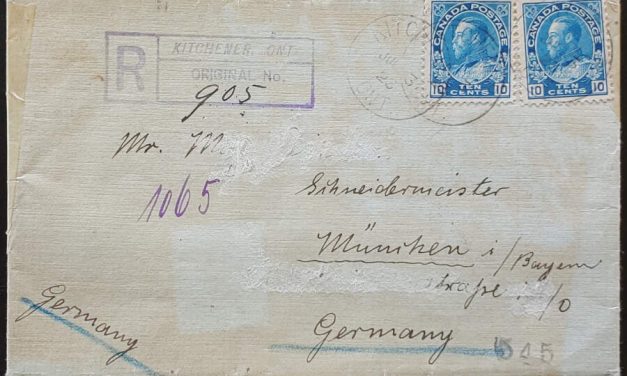 CANADA POSTAGE
10 TEN CENTS 10
CANADA POSTAGE
10 TEN CENTS 10
R
KITCHENER, ONT.
ORIGINAL No.
905
Mr.
1065
Schneidermeister
München i/Bayern
straße
Germany
Germany
545